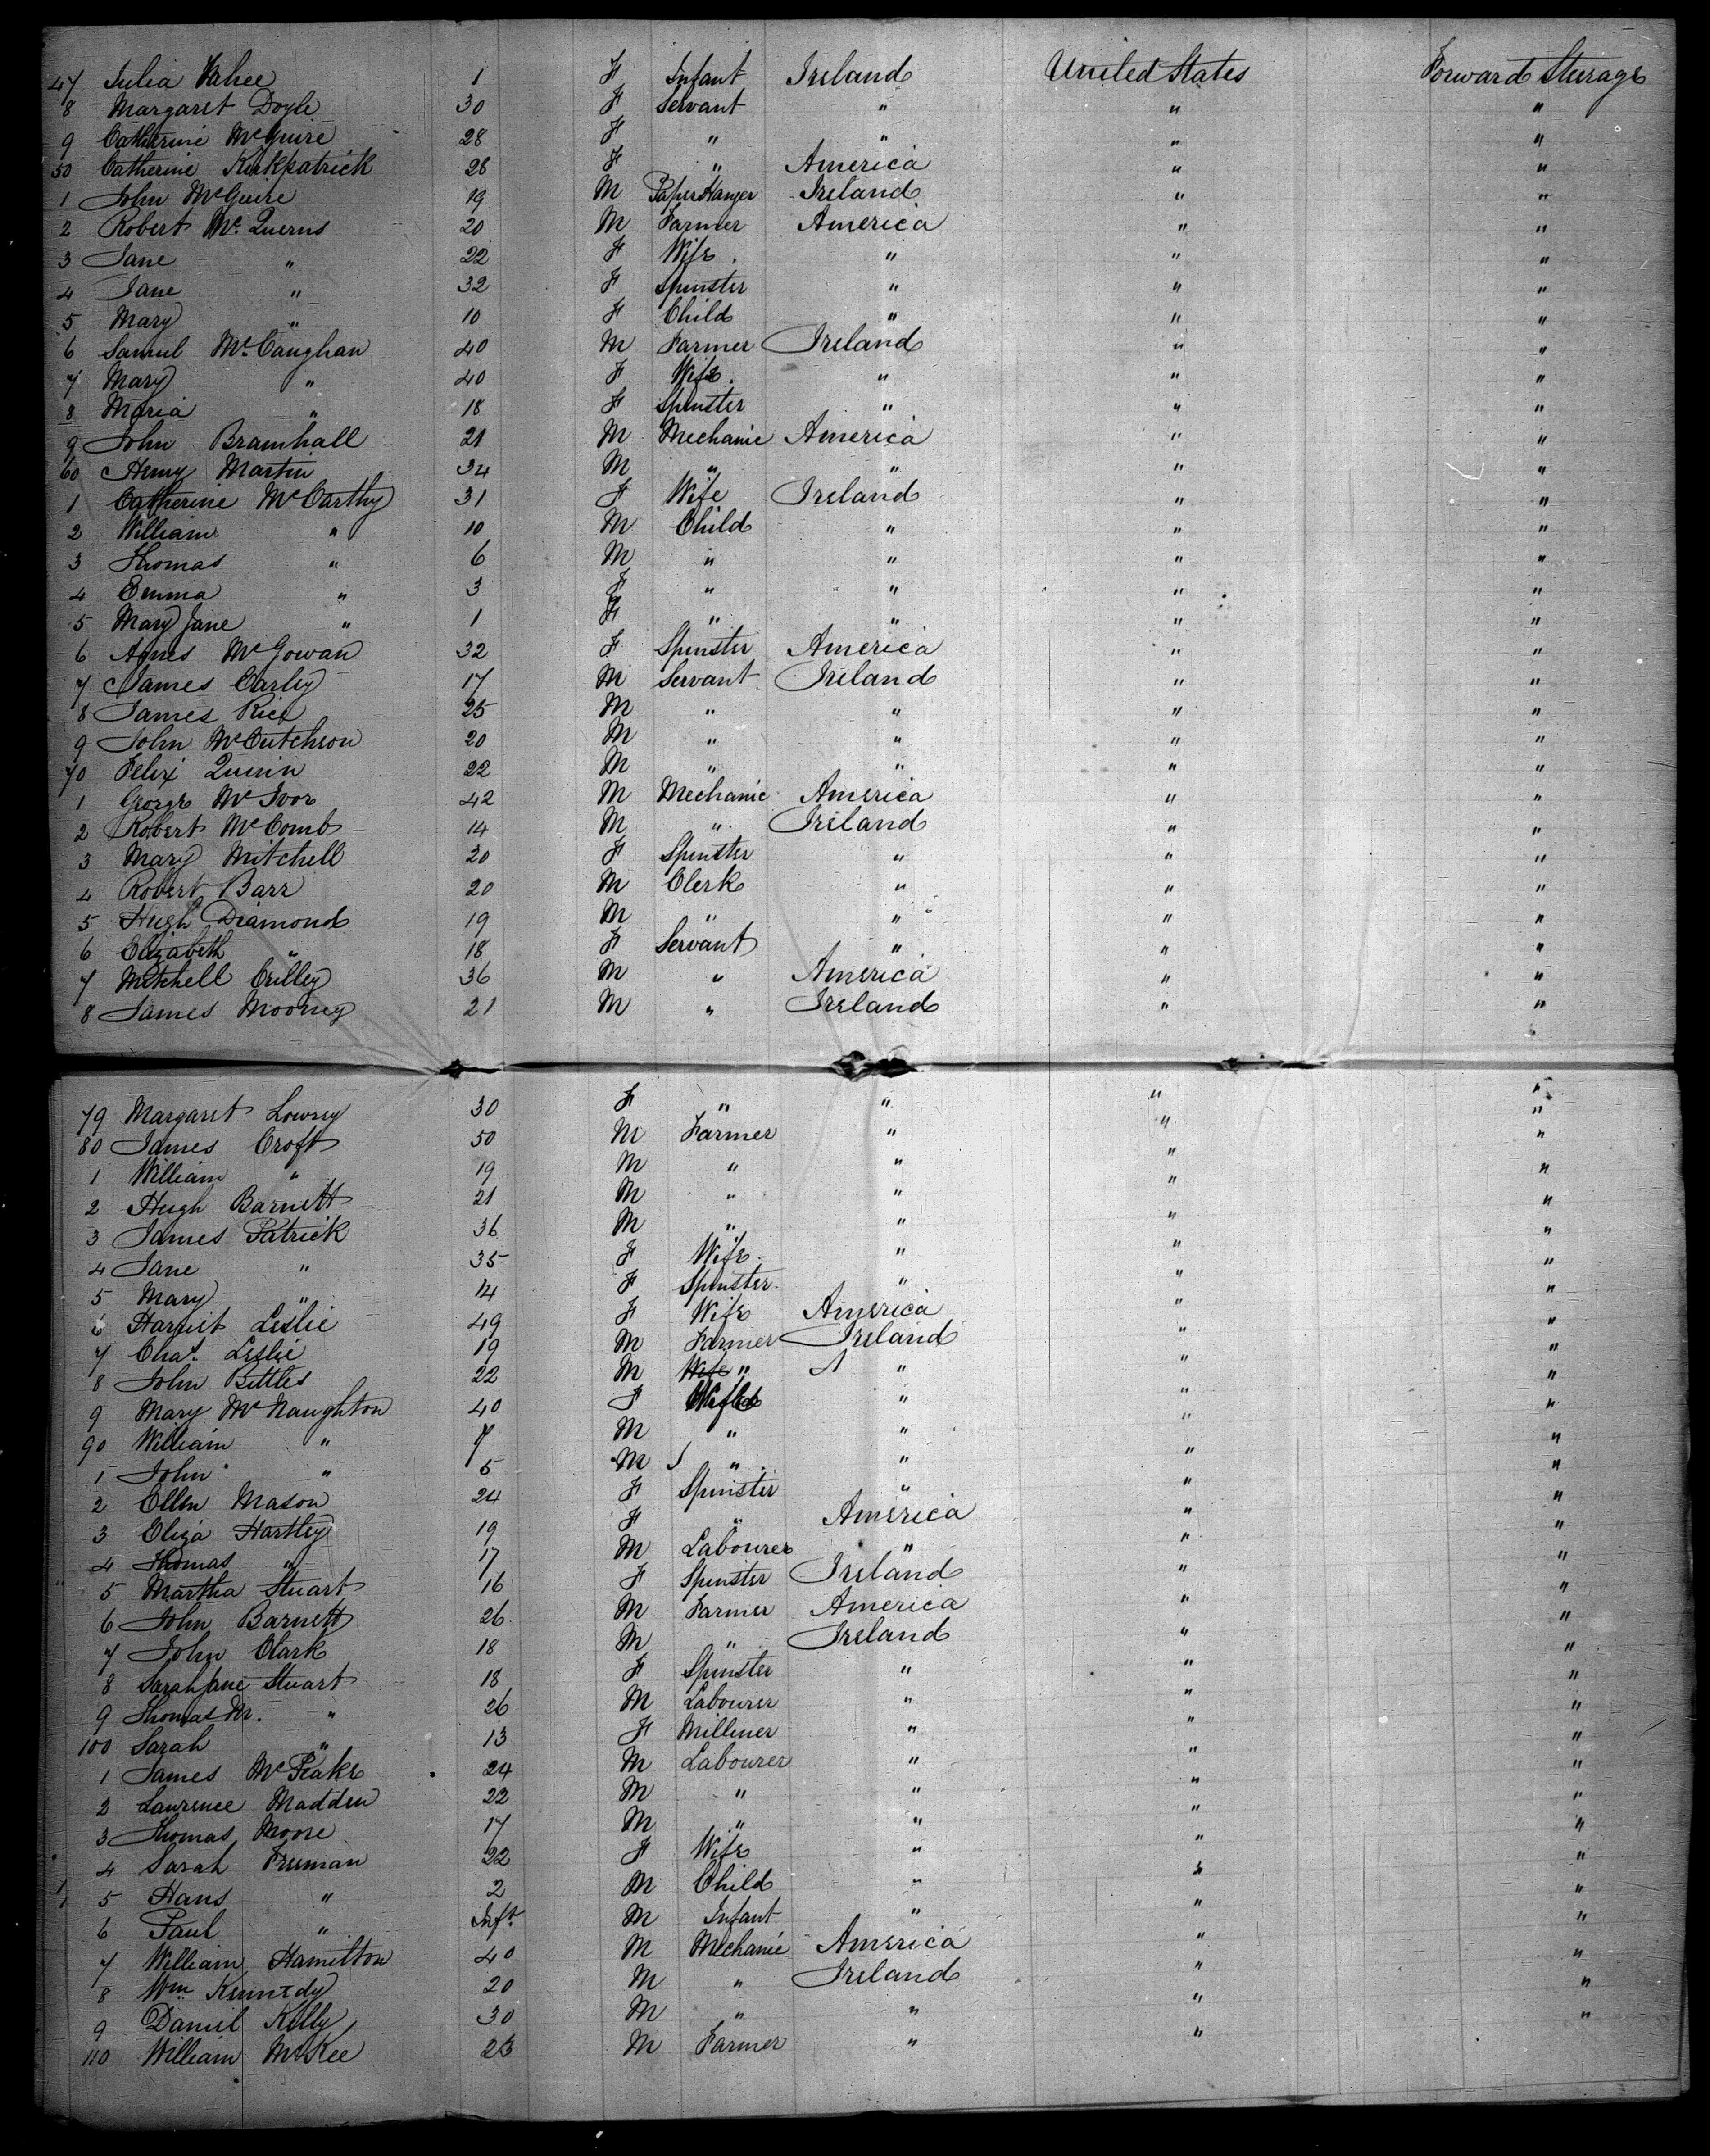 47 Julia Vahee 1 F Infant Ireland United States Forward Steerage
8 Margaret Doyle 30 F Servant " " "
9 Catherine McGuire 28 F " " " "
50 Catherine Kirkpatrick 28 F " America " "
1 John McGuire 19 M PaperHanger Ireland " "
2 Robert Mc.Querns 20 M Farmer America " "
3 Jane " 22 F Wife. " " "
4 Jane " 32 F Spinster " " "
5 Mary " 10 F Child " " "
6 Samuel Mc.Caughan 40 M Farmer Ireland " "
7 Mary " 40 F Wife. " " "
8 Maria " 18 F Spinster " " "
9 John Bramhall 21 M Mechanic America " "
60 Henry Martin 34 M " " " "
1 Catherine McCarthy 31 F Wife Ireland " "
2 William " 10 M Child " " "
3 Thomas " 6 M " " " "
4 Emma " 3 F " " " "
5 Mary Jane " 1 F " " " "
6 Agnes McGowan 32 F Spinster America " "
7 James Carley 17 M Servant Ireland " "
8 James Rice 25 M " " " "
9 John McCutchson 20 M " " " "
70 Felix Quinn 22 M " " " "
1 George McIvor 42 M Mechanic America " "
2 Robert McComb 14 M " Ireland " "
3 Mary Mitchell 20 F Spinster " " "
4 Robert Barr 20 M Clerk " " "
5 Hugh Diamond 19 M " " " "
6 Elizabeth " 18 F Servant " " "
7 Mitchell Crilley 36 M " America " "
8 James Mooney 21 M " Ireland " "
79 Margaret Lowrey 30 F " " " "
80 James Croft 50 M Farmer " " "
1 William " 19 M " " " "
2 Hugh Barnett 21 M " " " "
3 James Patrick 36 M " " " "
4 Jane " 35 F Wife. " " "
5 Mary " 14 F Spinster. " " "
6 Harriet Leslie 49 F Wife America " "
7 Chas. Leslie 19 M Farmer Ireland " "
8 John Bittles 22 M Wife " " " "
9 Mary McNaughton 40 F " " "
90 William " 7 M " " " "
1 John " 5 M " " " "
2 Ellen Mason 24 F Spinster " " "
3 Eliza Hartley 19 F " America " "
4 Thomas " 17 M Labourer " " "
5 Martha Stuart 16 F Spinster Ireland " "
6 John Barnett 26 M Farmer America " "
7 John Clark 18 M " Ireland " "
8 Sarah Jane Stuart 18 F Spinster " " "
9 Thomas M. " 26 M Labourer " " "
100 Sarah " 13 F Milliner " " "
1 James McPeake 24 M Labourer " " "
2 Lawrence Madden 22 M " " " "
3 Thomas Moore 17 M " " " "
4 Sarah Freeman 22 F Wife " " "
5 Hans " 2 M Child " " "
6 Paul " Inft. M Infant " " "
7 William Hamilton 40 M Mechanic America " "
8 Wm Kennedy 20 M " Ireland " "
9 Daniel Kelly 30 M " " " "
110 William McKee 23 M Farmer " "